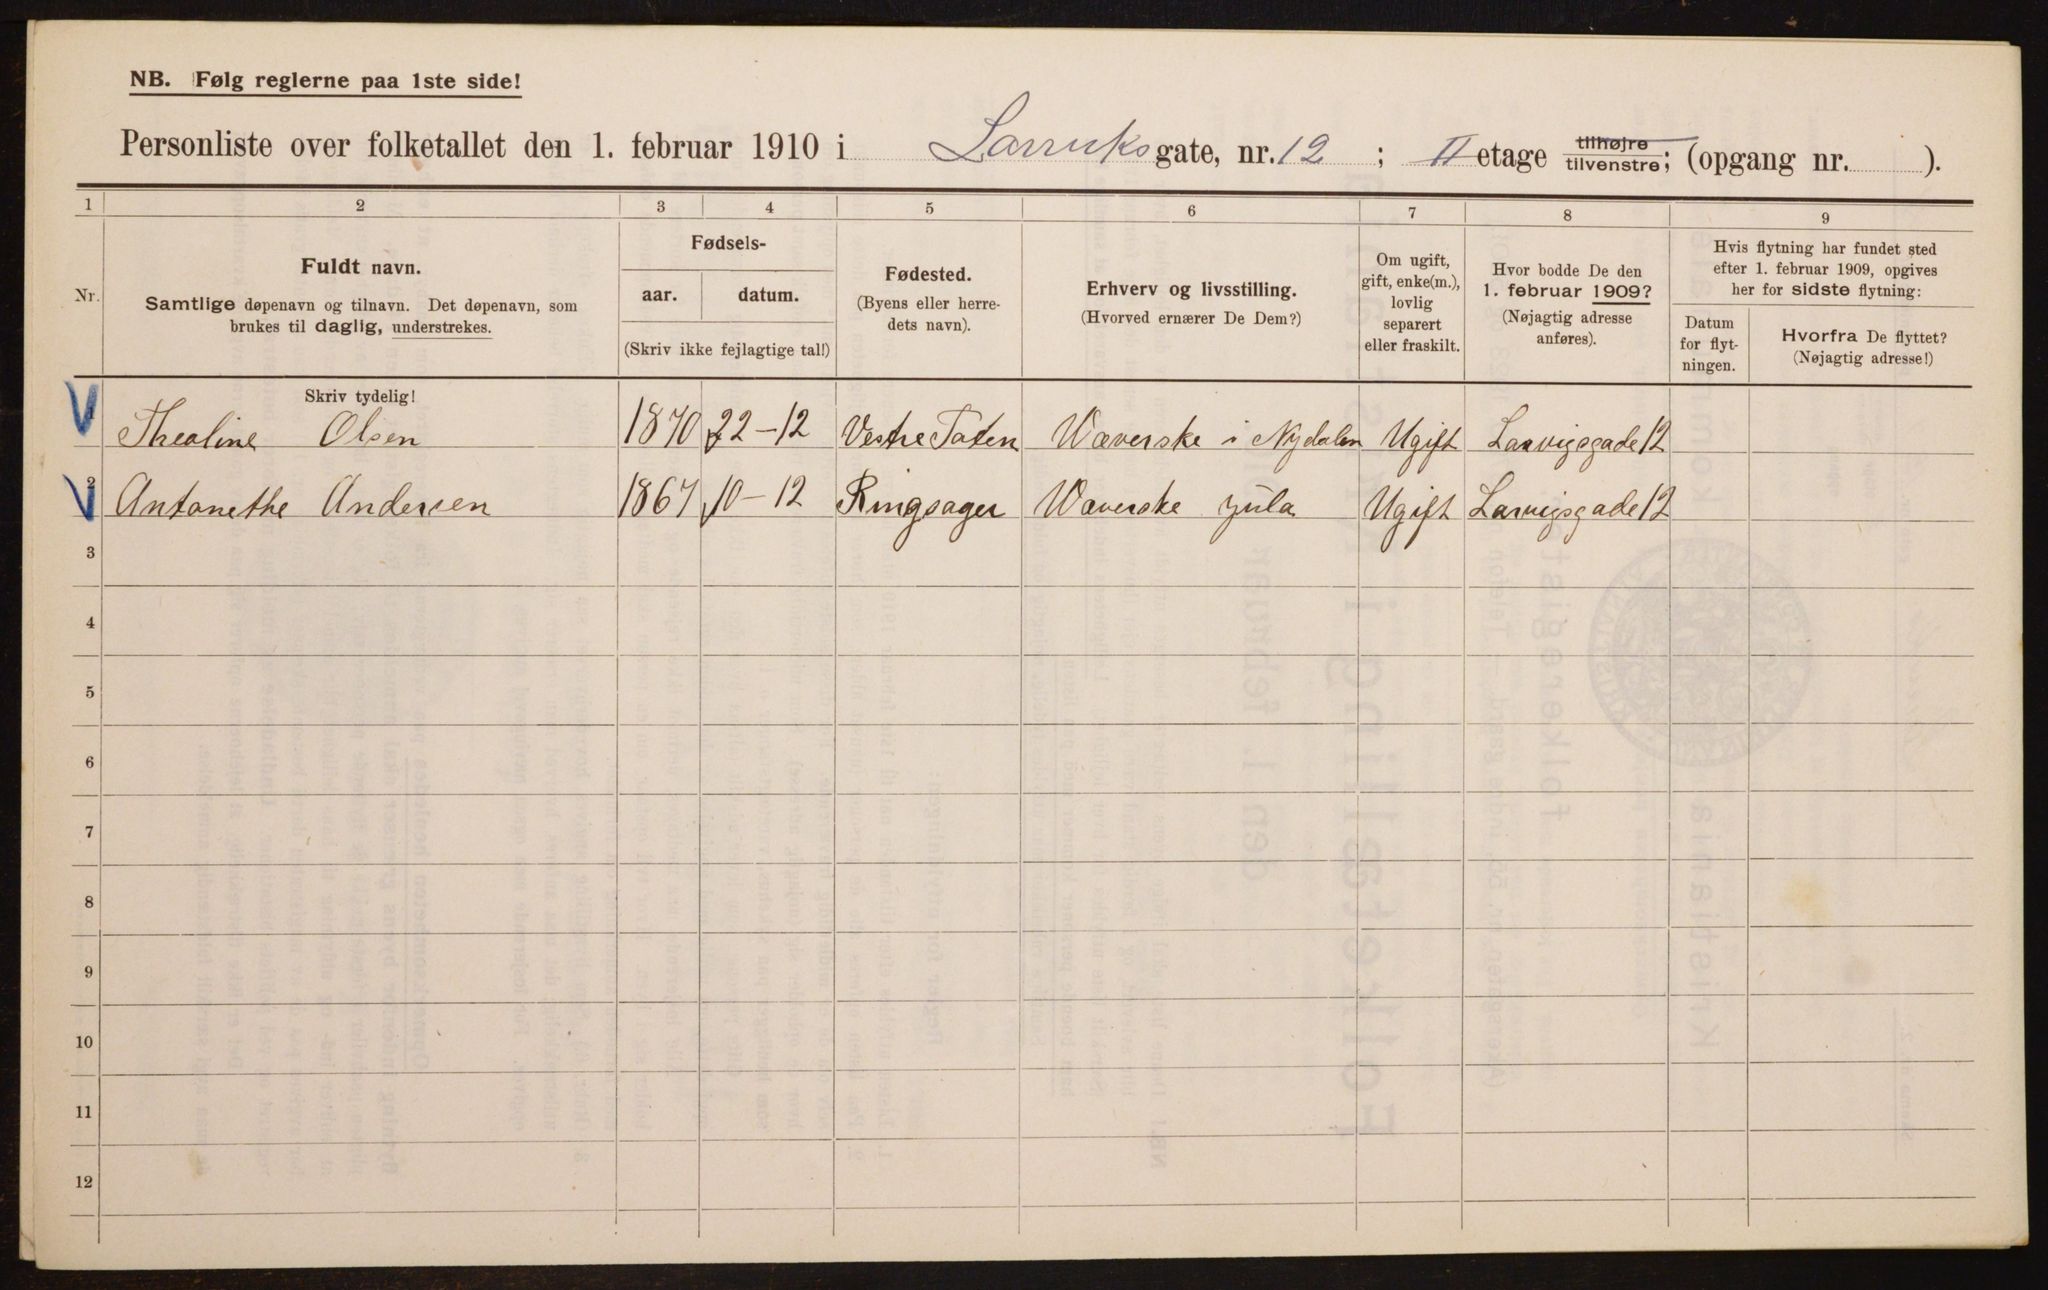 NB. Følg reglerne paa 1ste side!
Personliste over folketallet den 1. februar 1910 i Larviksgate, nr. 12; II etage tilhøjre tilvenstre; (opgang nr. ).
1 2 3 4 5 6 7 8 9
Nr.
Fuldt navn.
Samtlige døpenavn og tilnavn. Det døpenavn, som
brukes til daglig, understrekes.
Fødsels-
aar. datum.
(Skriv ikke fejlagtige tal!)
Fødested.
(Byens eller herre-
dets navn).
Erhverv og livsstilling.
(Hvorved ernærer De Dem?)
Om ugift,
gift, enke(m.),
lovlig
separert
eller fraskilt.
Hvor bodde De den
1. februar 1909?
(Nøjagtig adresse
anføres).
Hvis flytning har fundet sted
efter 1. februar 1909, opgives
her for sidste flytning:
Datum
for flyt-
ningen.
Hvorfra De flyttet?
(Nøjagtig adresse!)
Skriv tydelig!
1 Thealine Olsen 1870 22-12 Vestre Toten Wæverske i Nydalen Ugift Larvigsgade 12
2 Antonethe Andersen 1867 10-12 Ringsager Wæverske Jula Ugift Larvigsgade 12
3
4
5
6
7
8
9
10
11
12